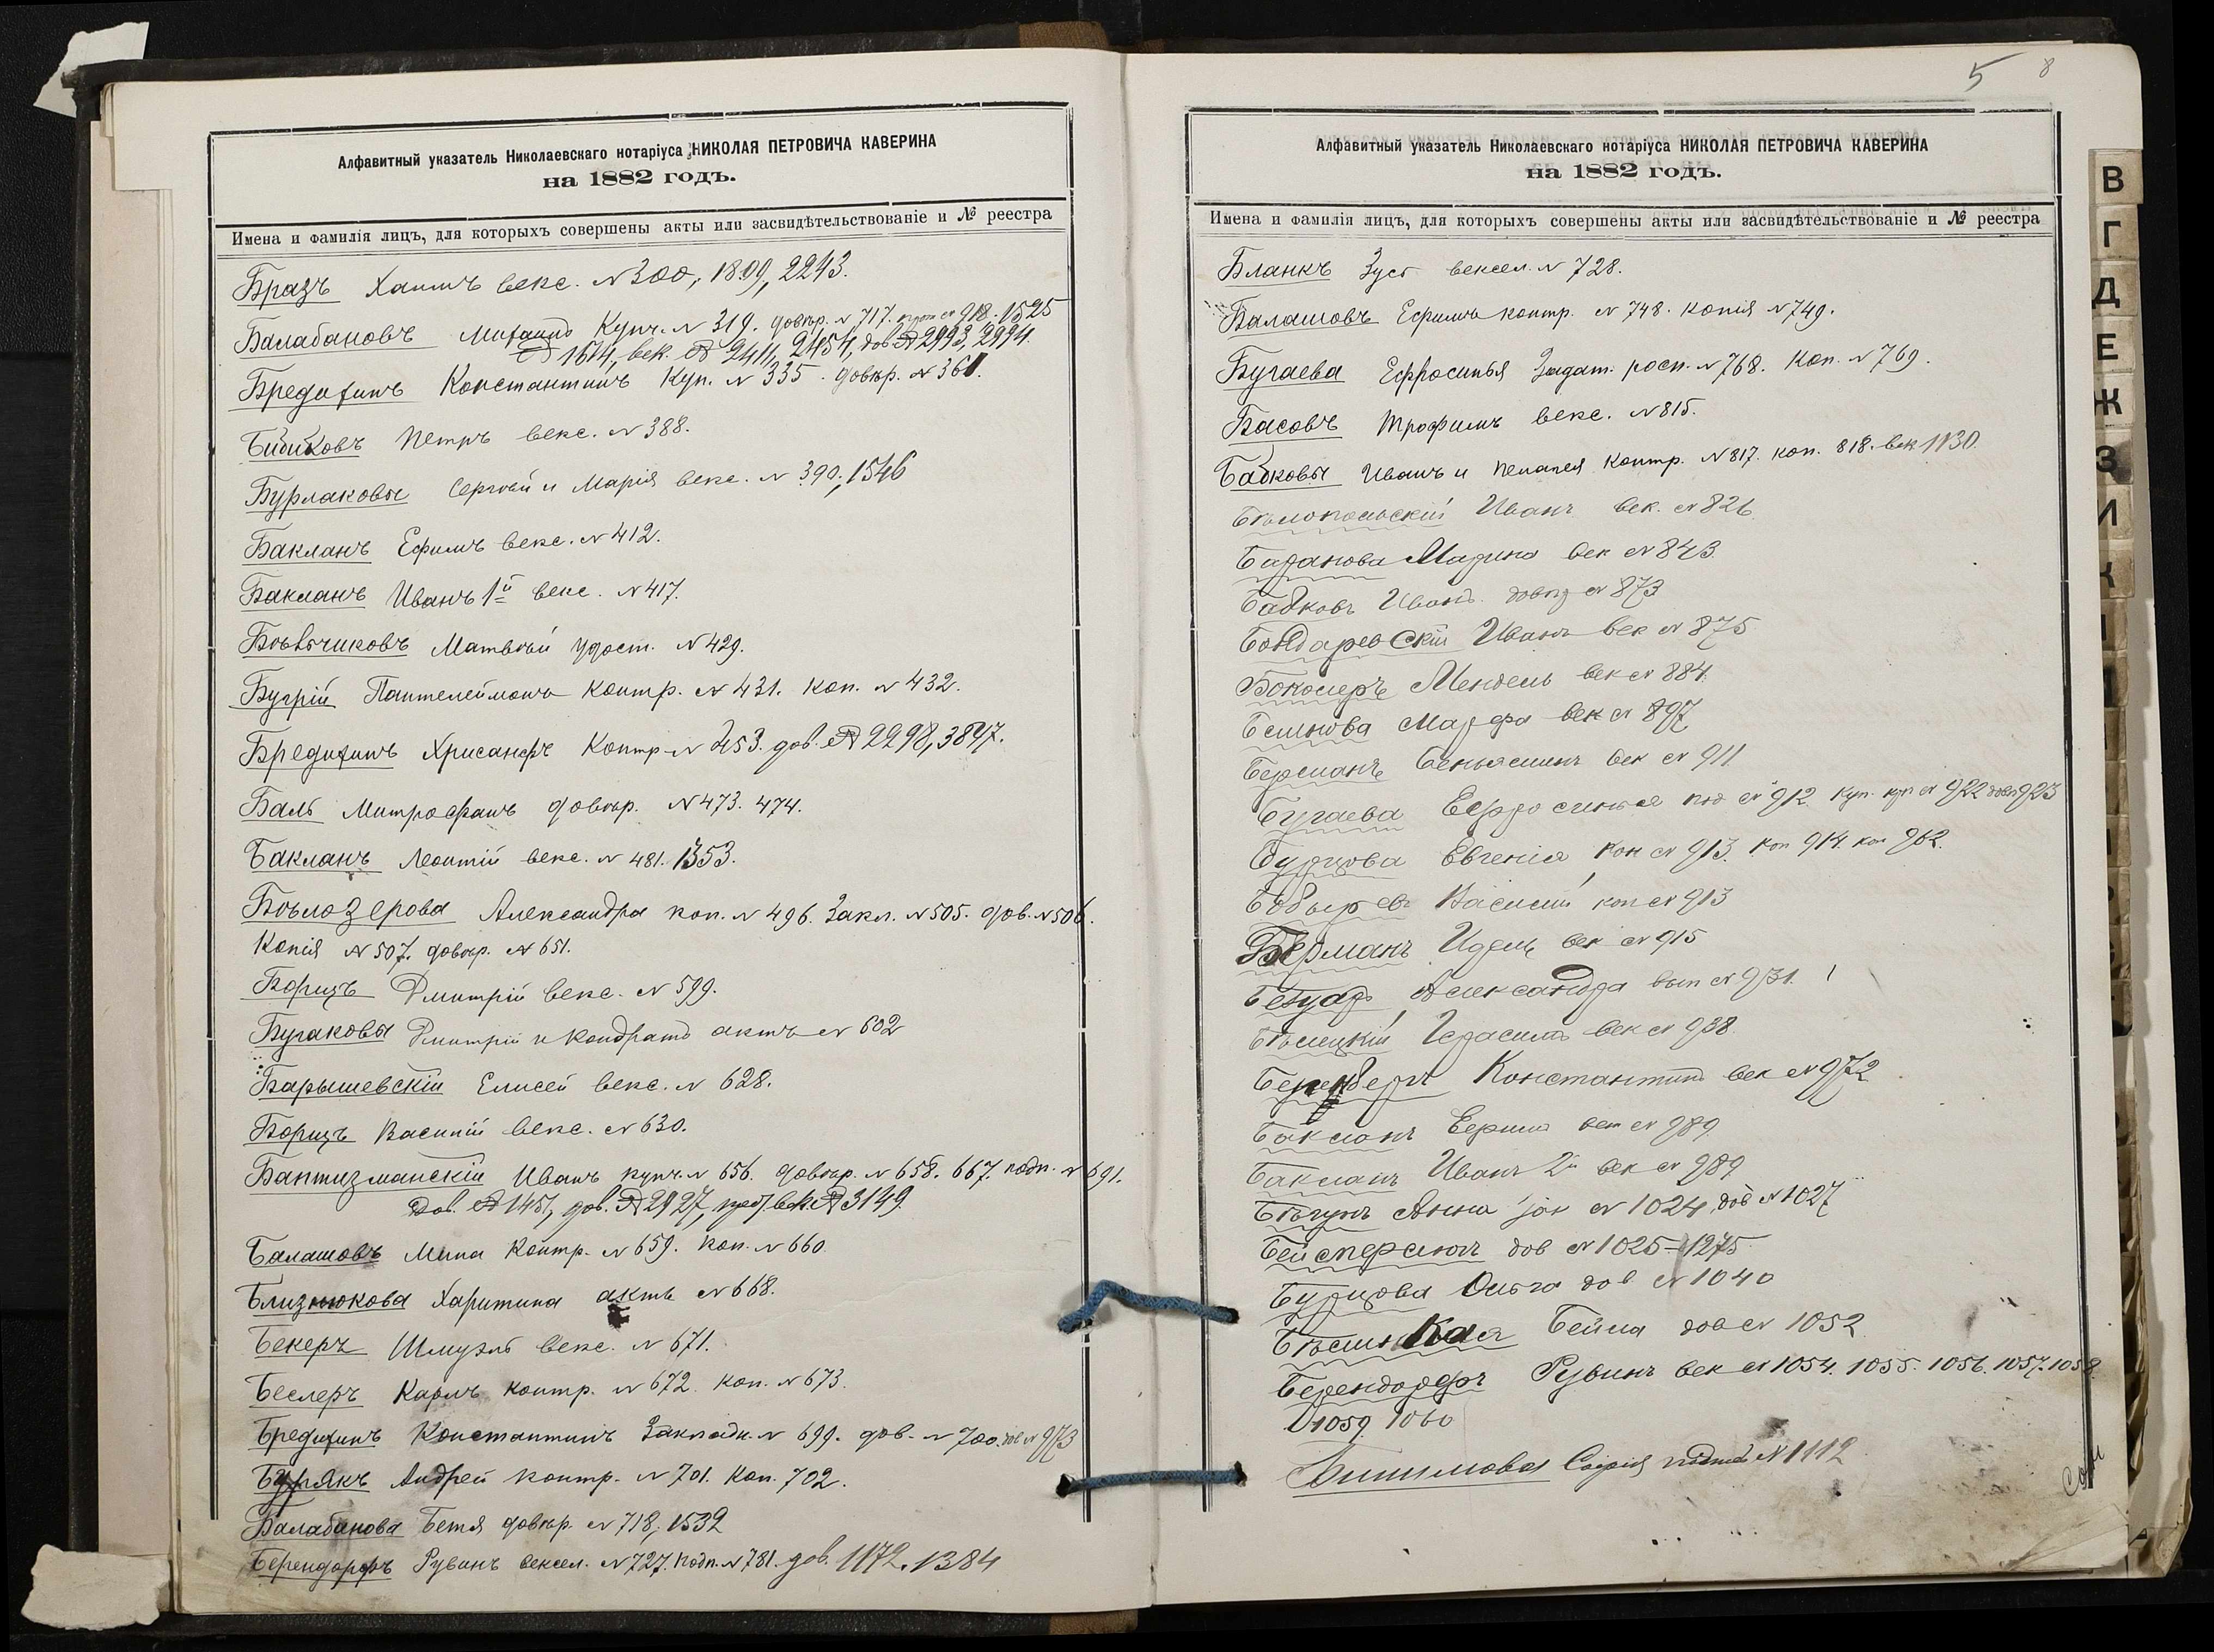 Алфавитный указатель Николаевскаго нотаріуса НИКОЛАЯ ПЕТРОВИЧА КАВЕРИНА
на 1882 годъ.
Имена и фамилія лицъ, для которыхъ совершены акты или засвидѣтельствованіе и № реестра
Бразъ Хаимъ векс. № 300, 1809, 2243.
Балабановъ Михаилъ Купч. № 319. довѣр. № 717. № 918. 1525
№ 1674, век. № 2411, 2454, дов № 2993, 2994.
Бредихинъ Константинъ Куп. № 335. довѣр. № 361.
Бибиковъ Петръ векс. № 388.
Бурлаковы Сергѣй и Марія векс. № 390, 1546
Бакланъ Ефимъ векс. № 412.
Бакланъ Иванъ 1й векс. № 417.
Матвѣй удост. № 429.
Бугрій Пантелеймонъ контр. № 431. коп. № 432.
Бредихинъ Хрисанфъ Контр № 453. дов. № 2298, 3847.
Баль Митрофанъ довѣр. № 473. 474.
Бакланъ Леонтій векс. № 481. 1353.
Бѣлозерова Александра коп. № 496. Закл. № 505. дов. № 506.
Копія № 507. довѣр. № 651.
Борщъ Дмитрій векс. № 599.
Бугаковы Дмитрій и Кондратъ актъ № 602
Барышевскій Елисей векс. № 628.
Борщъ Василій векс. № 630.
Баптизманскій Иванъ купч. № 656. довѣр. № 658. 667. подп. № 691.
Дов. № 1451, дов. № 2927, век. № 3149.
Балашовъ Мина Контр. № 659. коп. № 660
Близнюкова Харитина актъ № 668.
Бекеръ Шмуэль векс. № 671.
Беслеръ Карлъ контр. № 672. коп. № 673.
Бредихинъ Константинъ Закладн. № 699. дов. № 700. дов № 973
Бурякъ Андрей контр. № 701. коп. 702.
Балабанова Бетя довѣр. № 718, 1532
Берендорфъ Рувинъ вексел. № 727. подп. № 781. дов. 1172. 1384
5 8
Алфавитный указатель Николаевскаго нотаріуса НИКОЛАЯ ПЕТРОВИЧА КАВЕРИНА
на 1882 годъ.
Имена и фамилія лицъ, для которыхъ совершены акты или засвидѣтельствованіе и № реестра
Бланкъ Зусь вексел. № 728.
Балашовъ Ефимъ контр. № 748. копія № 749.
Бугаева Ефросинья Задат. росп. № 768. коп. № 769.
Басовъ Трофимъ векс. № 815.
Бабковы Иванъ и Пелагея контр. № 817. коп. 818. век 1130.
Бѣлопольскій Иванъ век. № 826
Баранова Марина век № 843
Бабковъ Иванъ довѣр № 873
Бондаревскій Иванъ век № 875
Мендель век № 884
Марфа век № 897
Берманъ Беньяминъ век № 911
Бугаева Ефросинья под № 912. куп. № 922 дов 923
Бурцова Евгенія коп № 913. коп 914. коп 962.
Василій коп № 913
Берманъ Идель век № 915
Александра вып № 931.
Бѣлецкій Герасимъ век № 938
Константинъ век № 972
Бакланъ век № 989
Бакланъ Иванъ 2й век № 989
Бѣгунъ Анна № 1024, дов № 1027
дов № 1025-1275
Бурцова Ольга дов № 1040
Бейла дов № 1052
Берендорфъ Рувинъ век № 1054. 1055. 1056. 1057. 1058.
1059. 1060
София № 1112
В
Г
Д
Е
Ж
З
И
К